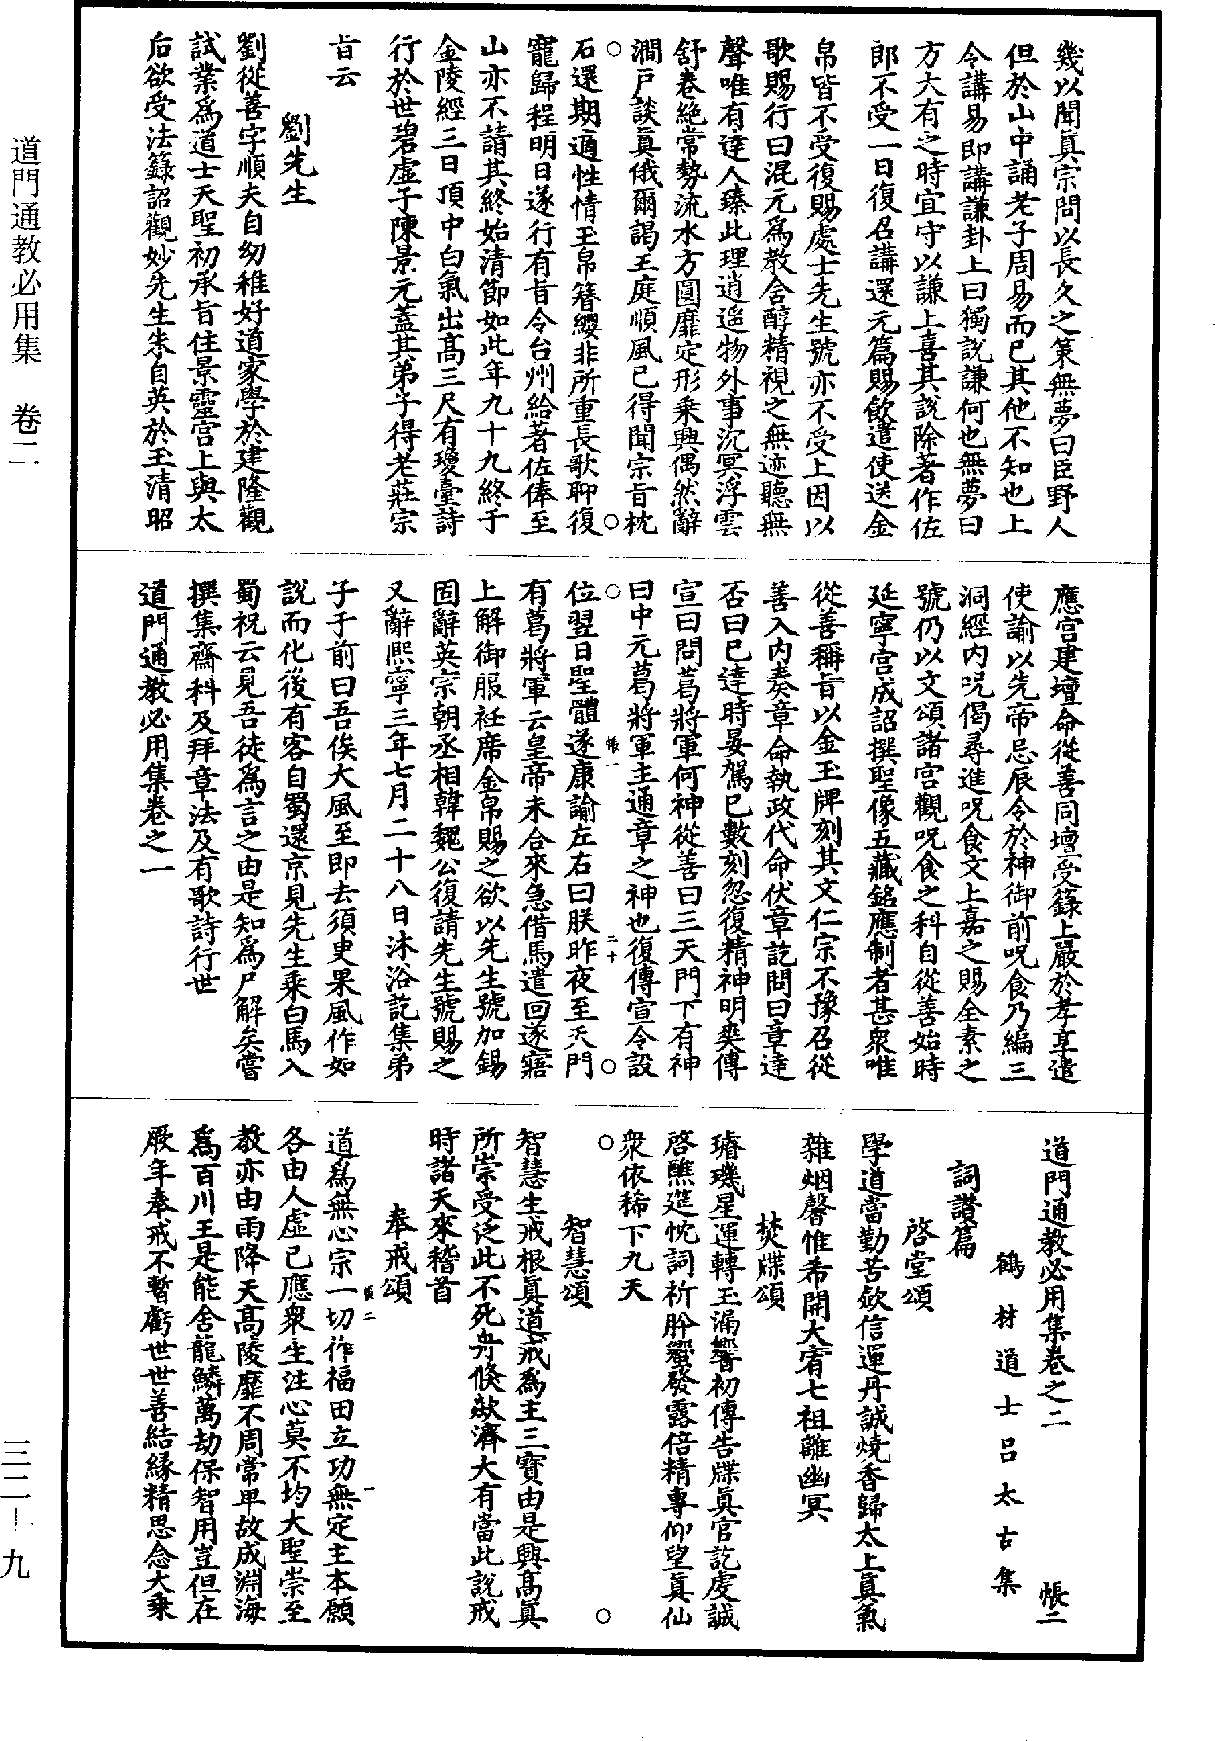 道門通教必用集　卷二
三二—九
幾以聞真宗問以長久之策無夢曰臣野人
但於山中誦老子周易而已其他不知也上
令講易即講謙卦上曰獨說謙何也無夢曰
方大有之時宜守以謙上喜其說除著作佐
郎不受一日復召講還元篇賜飲遣使送金
帛皆不受復賜處士先生號亦不受上因以
歌賜行曰混元為教含醇精視之無迹聽無
聲唯有達人臻此理逍遥物外事沉冥浮雲
舒卷絶常勢流水方圓靡定形乘興偶然辭
澗戶談真俄爾謁王庭順風已得聞宗旨枕
石還期適性情玉帛簪纓非所重長歌聊復
寵歸程明日遂行有旨令台州給著佐俸至
山亦不請其終始清節如此年九十九終于
金陵經三日頂中白氣出高三尺有瓊臺詩
行於世碧虛子陳景元蓋其弟子得老莊宗
旨云
劉先生
劉從善字順夫自幼稚好道家學於建隆觀
試業為道士天聖初承旨住景靈宮上與太
后欲受法籙詔觀妙先生朱自英於玉清昭
應宮建壇命從善同壇受籙上嚴於孝享遣
使諭以先帝忌辰令於神御前呪食乃編三
洞經内呪偈尋進呪食文上嘉之賜全素之
號仍以文頌諸宮觀呪食之科自從善始時
延寧宮成詔撰聖像五藏銘應制者甚衆唯
從善稱旨以金玉牌刻其文仁宗不豫召從
善入内奏章命執政代命伏章訖問曰章達
否曰已達時晏駕已數刻忽復精神明爽傳
宣曰問葛將軍何神從善曰三天門下有神
曰中元葛將軍主通章之神也復傳宣令設
位翌日聖體遂康諭左右曰朕昨夜至天門
有葛將軍云皇帝未合來急借馬遣回遂寤
上解御服衽席金帛賜之欲以先生號加錫
固辭英宗朝丞相韓魏公復請先生號賜之
又辭熙寧三年七月二十八日沐浴訖集弟
子于前曰吾俟大風至即去須臾果風作如
說而化後有客自蜀還京見先生乘白馬入
蜀祝云見吾徒為言之由是知為尸解矣嘗
撰集齋科及拜章法及有歌詩行世
道門通教必用集卷之一
帳一
二十
道門通教必用集卷之二　帳二
鶴林道士呂太古集
詞讚篇
啓堂頌
學道當勤苦歛信運丹誠燒香歸太上真氣
雜烟馨惟希開大宥七祖離幽冥
焚牒頌
璿璣星運轉玉漏響初傳告牒真官訖虔誠
啓醮筵忱詞祈肸蠁發露倍精專仰望真仙
衆依稀下九天
智慧頌
智慧生戒根真道戒為主三寶由是興高真
所崇受泛此不死舟倏欻濟大有當此說戒
時諸天來稽首
奉戒頌
道為無心宗一切作福田立功無定主本願
各由人虛己應衆生注心莫不均大聖崇至
教亦由雨降天高陵靡不周常卑故成淵海
為百川王是能含龍鱗萬劫保智用豈但在
厥年奉戒不暫虧世世善結緣精思念大乘
帳二
一